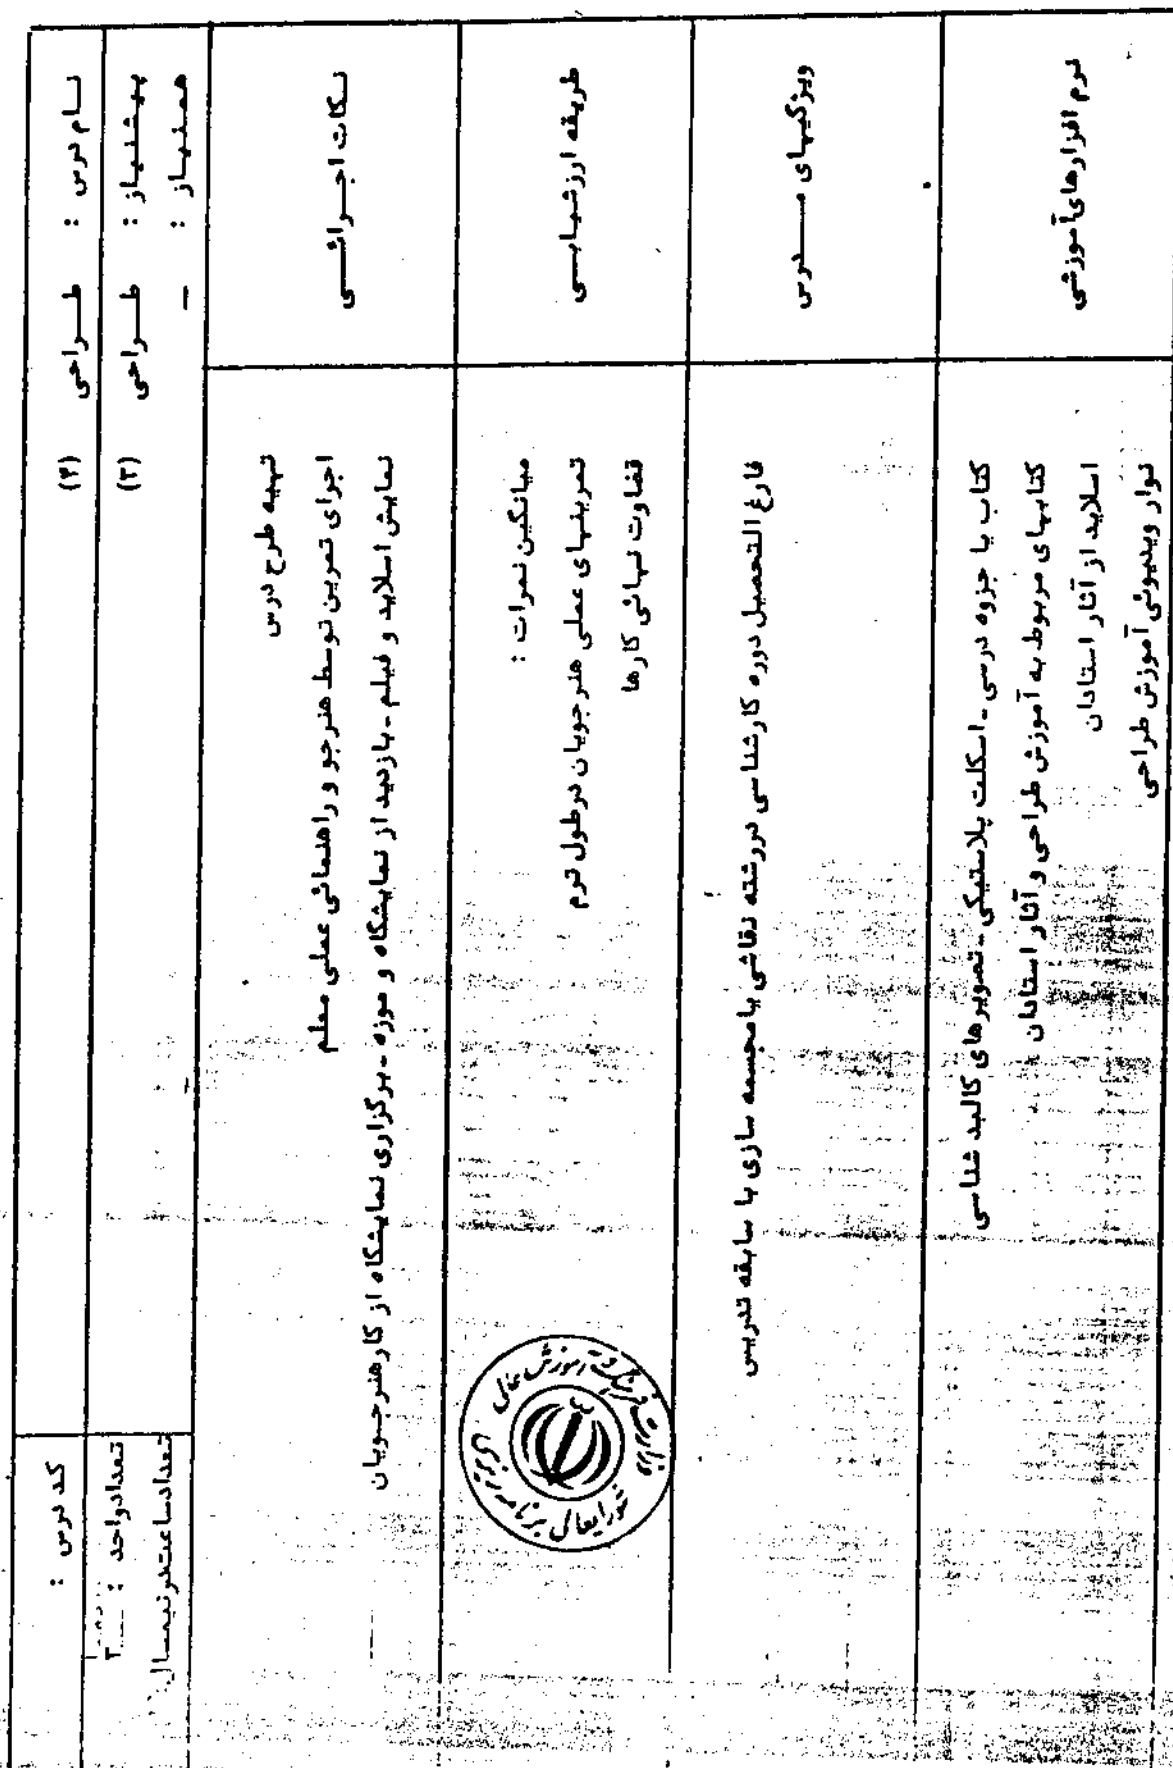 نام درس : طراحی (۴)
کد درس :
پیشنیاز : طراحی (۳)
تعداد واحد : ۲
همنیاز : -
تعداد ساعت در نیمسال :
نکات اجرائی
تهیه طرح درس
اجرای تمرین توسط هنرجو و راهنمائی عملی معلم
نمایش اسلاید و فیلم - بازدید از نمایشگاه و موزه - برگزاری نمایشگاه از کار هنرجویان
طریقه ارزشیابی
میانگین نمرات :
تمرینهای عملی هنرجویان در طول ترم
قضاوت نهائی کارها
وزارت فرهنگ و آموزش عالی
شورایعالی برنامه ریزی
ویژگیهای مدرس
فارغ التحصیل دوره کارشناسی در رشته نقاشی یا مجسمه سازی با سابقه تدریس
نرم افزارهای آموزشی
کتاب یا جزوه درسی - اسکلت پلاستیکی - تصویرهای کالبد شناسی
کتابهای مربوط به آموزش طراحی و آثار استادان
اسلاید از آثار استادان
نوار ویدیوئی آموزش طراحی